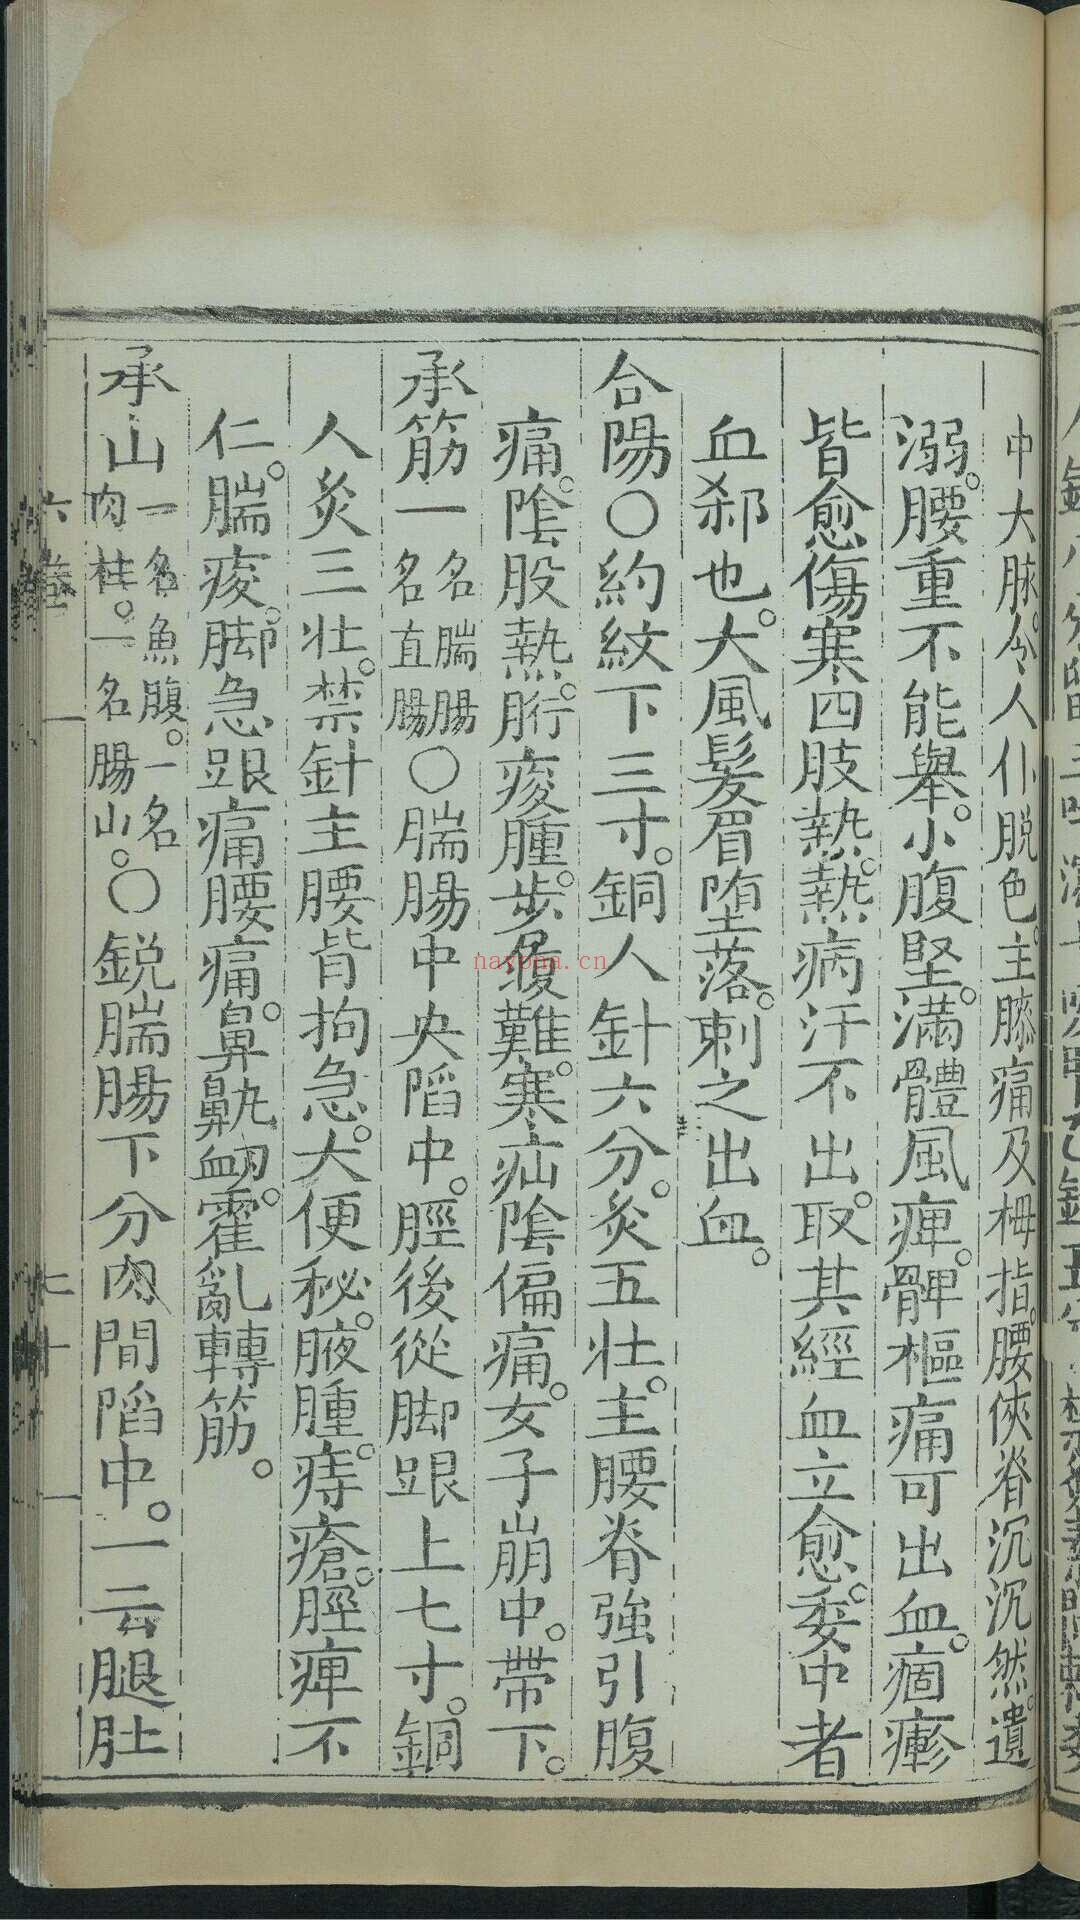 中大脉。令人仆脱色。主膝痛及栂指。腰俠脊沉沉然。遺
溺。腰重不能舉。小腹堅。滿體風痺。髀樞痛可出血。痼瘮
皆愈傷寒四肢熱。熱病汗不出。取其經血立愈。委中者
血郄也。大風髮眉堕落。刺之出血。
合陽〇約紋下三寸。銅人針六分。炎五壯。主腰脊強引腹
痛。陰股熱。胻痠腫。步履難。寒疝陰偏痛。女子崩中。帶下。
承筋一名腨腸一名直腸〇腨腸中央陷中。脛後從脚跟上七寸。銅
人炙三壯。禁針主腰背拘急。大便秘。腋腫。痔瘡。脛痺不
仁。腨痠。脚急跟痛腰痛。鼻鼽衂。霍亂轉筋。
承山一名魚腹。一名肉柱。一名腸山。〇銳腨腸下分肉間陷中。一云腿肚
六卷
七十
nayona.cn